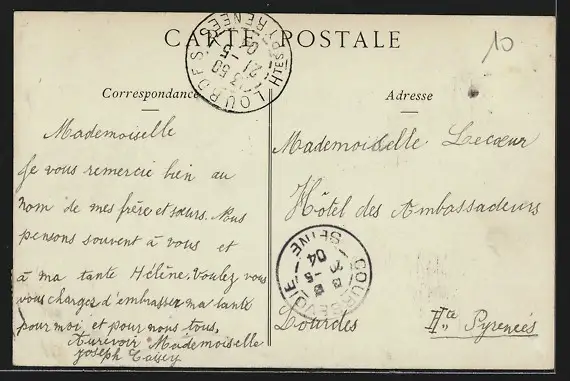 CARTE POSTALE
10
Correspondance
Mademoiselle
Je vous remercie bien au
nom de mes frère et sœurs. Nous
pensons souvent à vous et
à ma tante Hélène. Voulez vous
vous charger d'embrasser ma tante
pour moi et pour nous tous,
Aurevoir Mademoiselle
Joseph
Adresse
Mademoiselle Lecœur
Hôtel des Ambassadeurs
Lourdes Htes Pyrenées
LOURDES
HTES PYRENEES
13 50
21 - 5
04
COURBEVOIE
SEINE
- 5
04